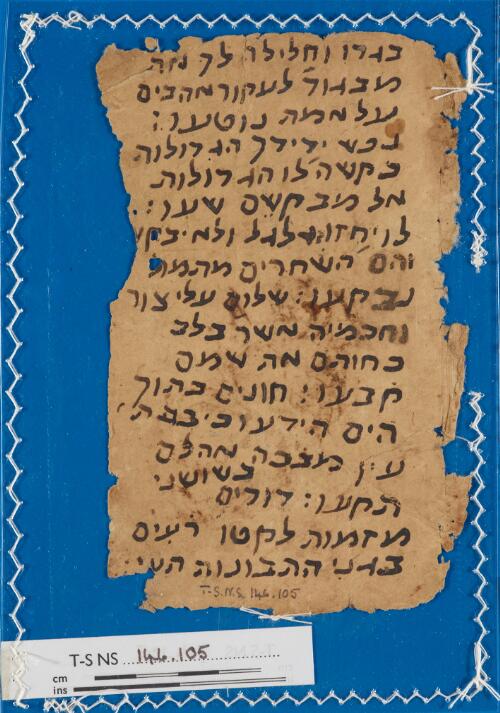 בגדו וחלילה לך את
מבגוד לעקור אהבים
על אמת נוטעו:
נפש ידידך הגדולות
בקשה לו הגדולות
אל מיבקשם שעו:
לו יחזו הלגל ולא יבקע
והם השחרים מהמה
נבקעו: שלום עלי צור
וחכמיה אשר בלב
כחותם את שמם
קבעו: חונים בתוך
הים הידעו כי
עין מצבה אהלם
בשושני
תקעו: דודים
מזמות לקטו רעים
בגני התבונות
T-S.N.S. 144.105
T-S NS 144.105
cm
ins